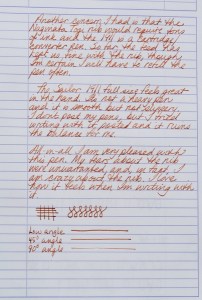 Another concern I had is that the
Naginata Togi nib would require tons
of ink and the 1911 is a cartridge/
converter pen. So far, the feed has
kept up fine with the nib, though
I'm certain I will have to refill the
pen often.
The Sailor 1911 full size feels great
in the hand. Its not a heavy pen
and it is smooth but not slippery.
I don't post my pens, but I tried
writing with it posted and it ruins
the balance for me.
All-in-all, I am very pleased with
this pen. My fears about the nib
were unwarranted and, in fact, I
am crazy about the nib. I love
how it feels when I'm writing with
it.
Low angle
45° angle
90° angle